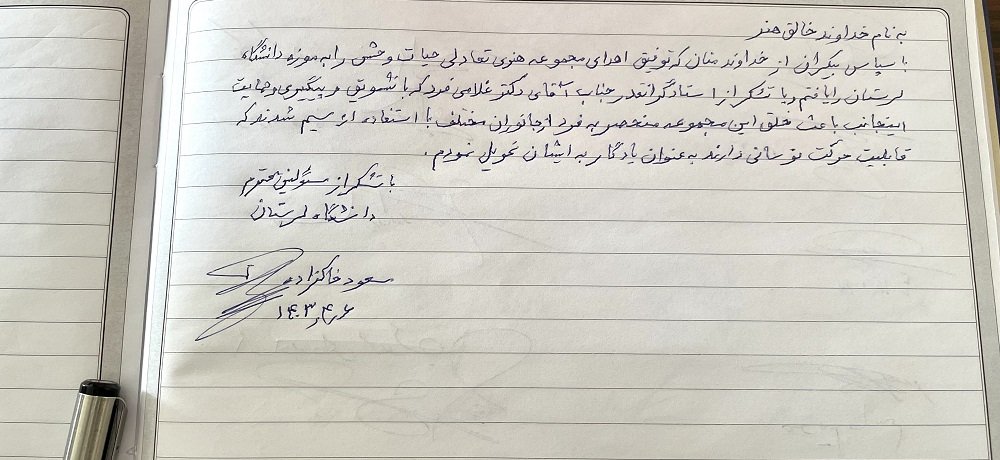 به نام خداوند خالق هنر
با سپاس بیکران از خداوند منان که توفیق اهدای مجموعه هنری تعادلی حیات وحش را به موزه دانشگاه
لرستان را یافتم و با تشکر از استاد گرانقدر جناب آقای دکتر غلامی فرد که با تشویق و پیگیری و حمایت
اینجانب باعث خلق این مجموعه منحصر به فرد از جانوران مختلف با استفاده از سیم شدند که
قابلیت حرکت نوسانی دارند به عنوان یادگار به ایشان تحویل نمودم.
با تشکر از مسئولین محترم
دانشگاه لرستان
مسعود خاکزاده
۱۴۰۳٫۴٫۶